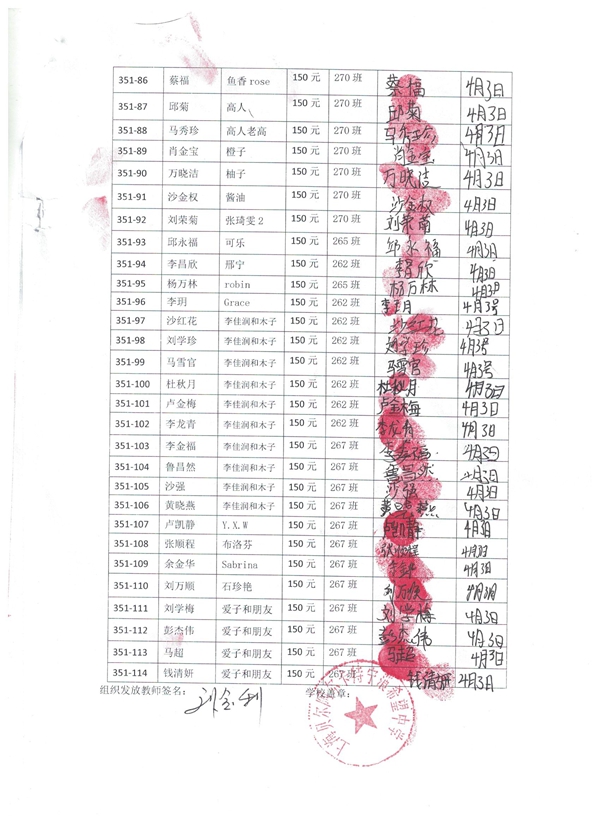 351-86 蔡福 鱼香rose 150元 270班 蔡福 4月3日
351-87 邱菊 高人 150元 270班 邱菊 4月3日
351-88 马秀珍 高人老高 150元 270班 马秀珍 4月3日
351-89 肖金宝 橙子 150元 270班 肖金宝 4月3日
351-90 万晓洁 柚子 150元 270班 万晓洁 4月3日
351-91 沙金权 酱油 150元 270班 沙金权 4月3日
351-92 刘荣菊 张琦雯2 150元 270班 刘荣菊 4月3日
351-93 邱永福 可乐 150元 265班 邱永福 4月3日
351-94 李昌欣 邢宁 150元 262班 李昌欣 4月3日
351-95 杨万林 robin 150元 265班 杨万林 4月3日
351-96 李玥 Grace 150元 262班 李玥 4月3号
351-97 沙红花 李佳润和木子 150元 262班 沙红花 4月3日
351-98 刘学珍 李佳润和木子 150元 262班 刘学珍 4月3号
351-99 马雪官 李佳润和木子 150元 262班 马雪官 4月3号
351-100 杜秋月 李佳润和木子 150元 262班 杜秋月 4月3日
351-101 卢金梅 李佳润和木子 150元 262班 卢金梅 4月3日
351-102 李龙青 李佳润和木子 150元 262班 李龙青 4月3日
351-103 李金福 李佳润和木子 150元 267班 李金福 4月3日
351-104 鲁昌然 李佳润和木子 150元 267班 鲁昌然 4月3日
351-105 沙强 李佳润和木子 150元 267班 沙强 4月3日
351-106 黄晓燕 李佳润和木子 150元 267班 黄晓燕 4月3日
351-107 卢凯静 Y.X.W 150元 267班 卢凯静 4月3日
351-108 张顺程 布洛芬 150元 267班 张顺程 4月3日
351-109 余金华 Sabrina 150元 267班 4月3日
351-110 刘万顺 石珍艳 150元 267班 刘万顺 4月3日
351-111 刘学梅 爱子和朋友 150元 267班 刘学梅 4月3日
351-112 彭杰伟 爱子和朋友 150元 267班 彭杰伟 4月3日
351-113 马超 爱子和朋友 150元 267班 马超 4月3日
351-114 钱清妍 爱子和朋友 150元 267班 钱清妍 4月3日
组织发放教师签名： 刘金利 学校盖章：